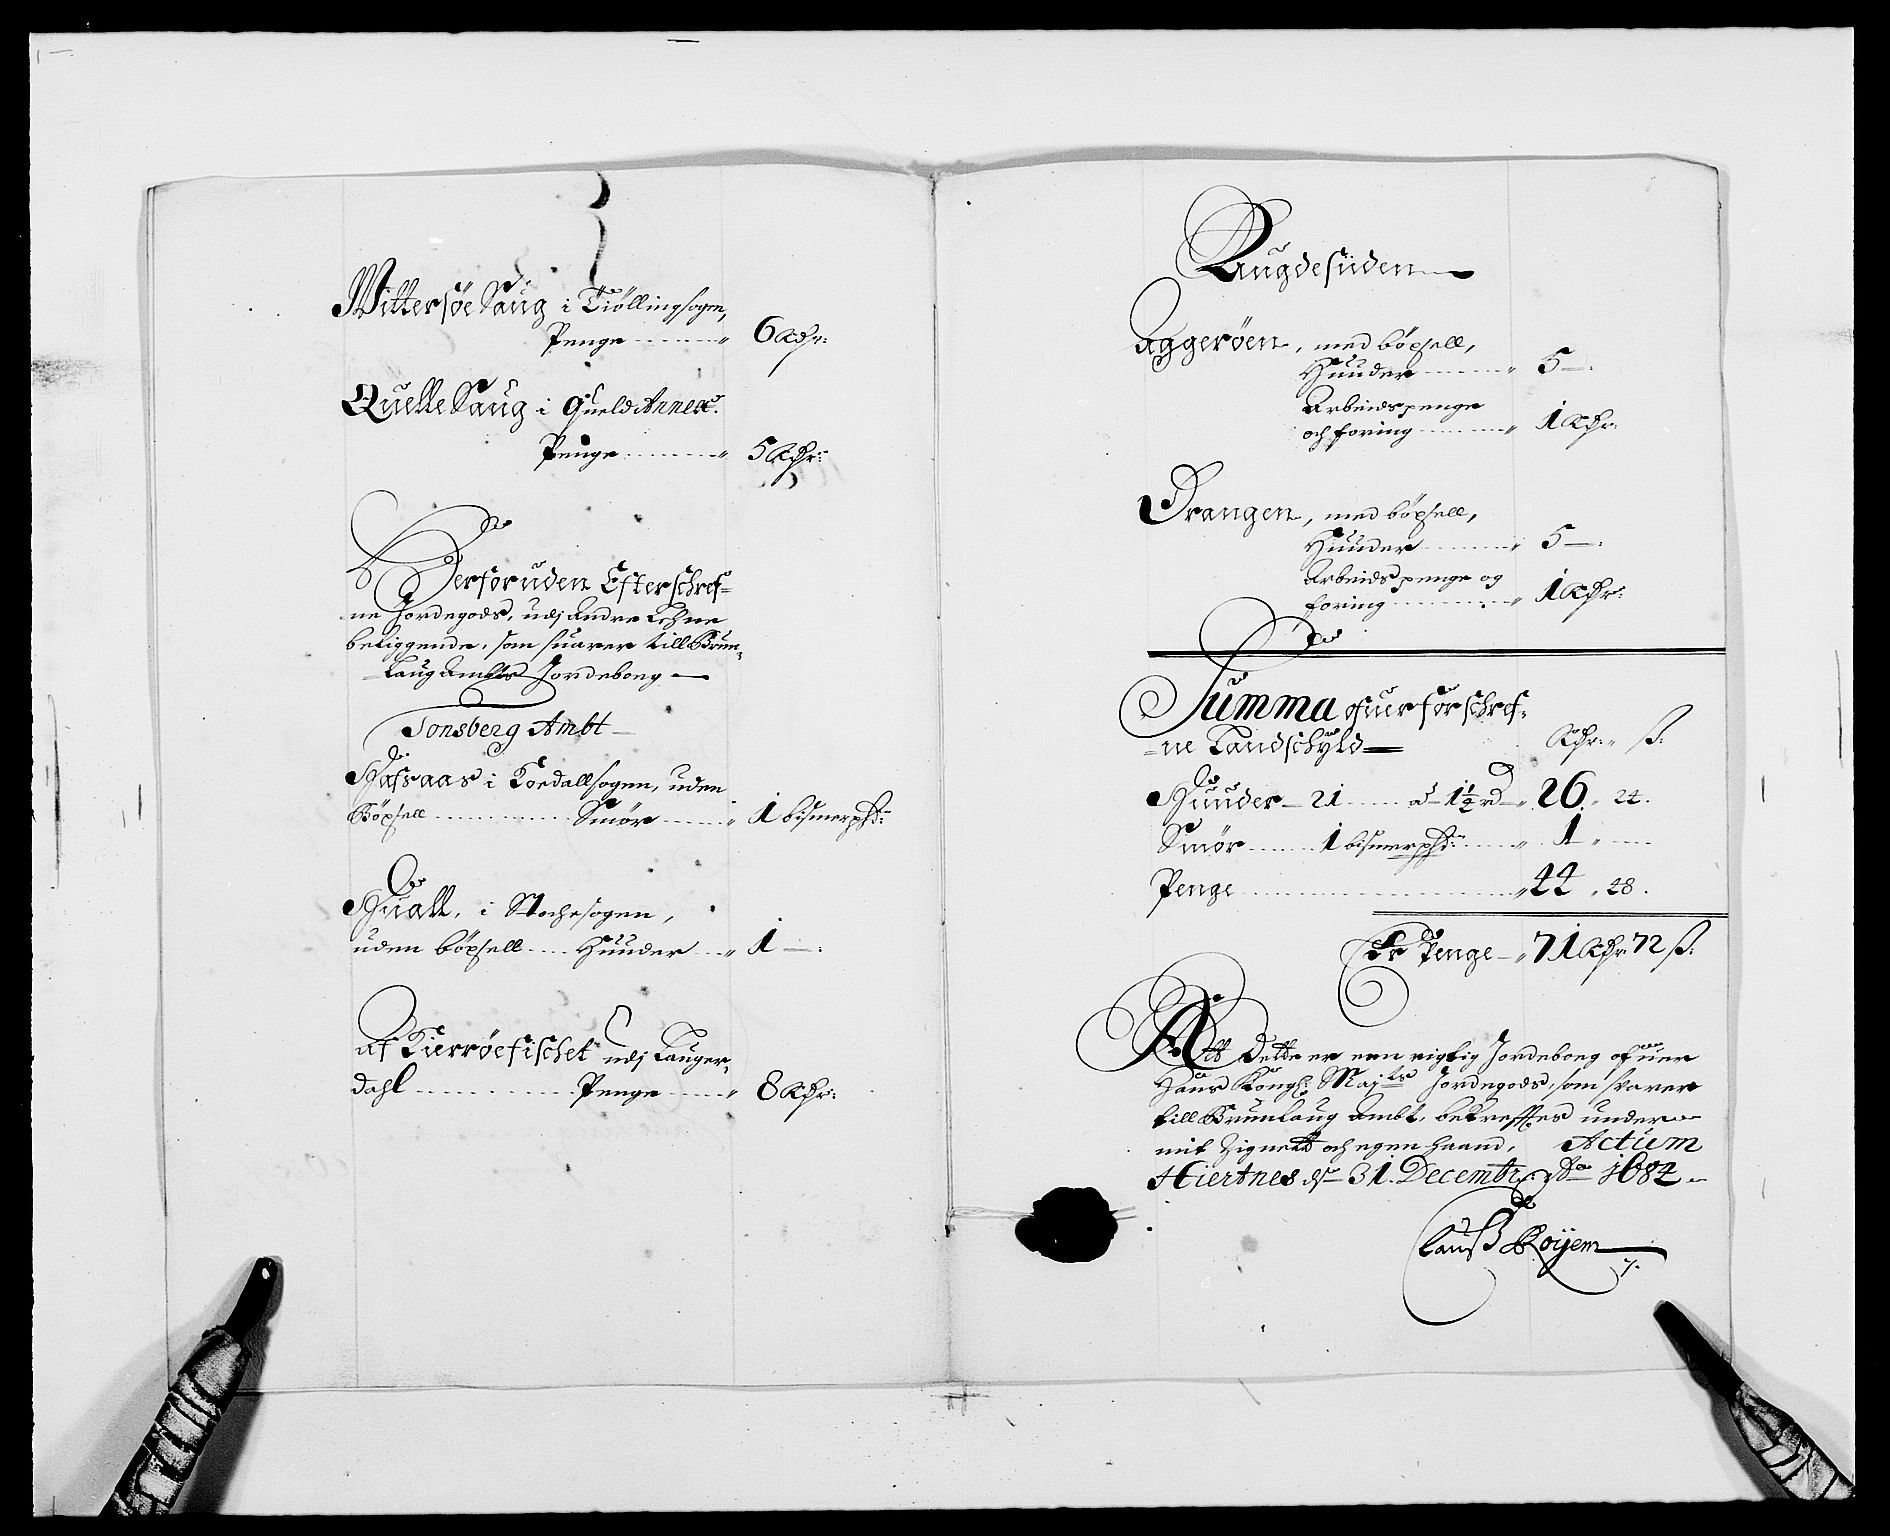 Wittersøe Saug i Tiøllingsogen,
Penge ......... " 6 Rdr:
Quelle Saug i Queld Annex.
Penge ......... " 5 Rdr:
Derforuden Efterschref=
ne Jordegods, udj andre Lehne
beliggende, som suarer till Brun=
=laug Ambts Jordebog —
Tonsberg Ambt —
Hafsaas i Kodallsogen, uden
Bøxsell ............ Smør ...... " 1 bismerpd:
Huall, i Stochesogen,
uden bøxsell .... Huuder ... " 1 —.
af Kierrøefischet udj Lauger=
dahl ............ Penge ..... " 8 Rdr:
Augdesiiden —
Aggerøen, med bøxsell,
Huuder ....... " 5 —.
Arbeidspenge
och foring ....... " 1 Rdr:
Drangen, med bøxsell,
Huuder ....... " 5 —.
Arbeidspenge og
foring ....... " 1 Rdr:
Summa ofuer forschref=
=ne Landschyld — Rdr: " ß:
Huuder — 21 ..... a 1½ rd — " 26 " 24.
Smør ...... 1 bismerpd: ..... " 1 " —
Penge .................. " 44 " 48.
Er Penge — " 71 Rdr 72 ß:
Att Dette er een rigtig Jordeboeg ofuer
Hans Kongl: Mayts Jordegods, som svarer
till Brunlaug Ambt, bekreffes under
mit Zignett och egen haand, Actum
Hiertnes d: 31. Decembr: Ao 1684.
Clauß Røyem